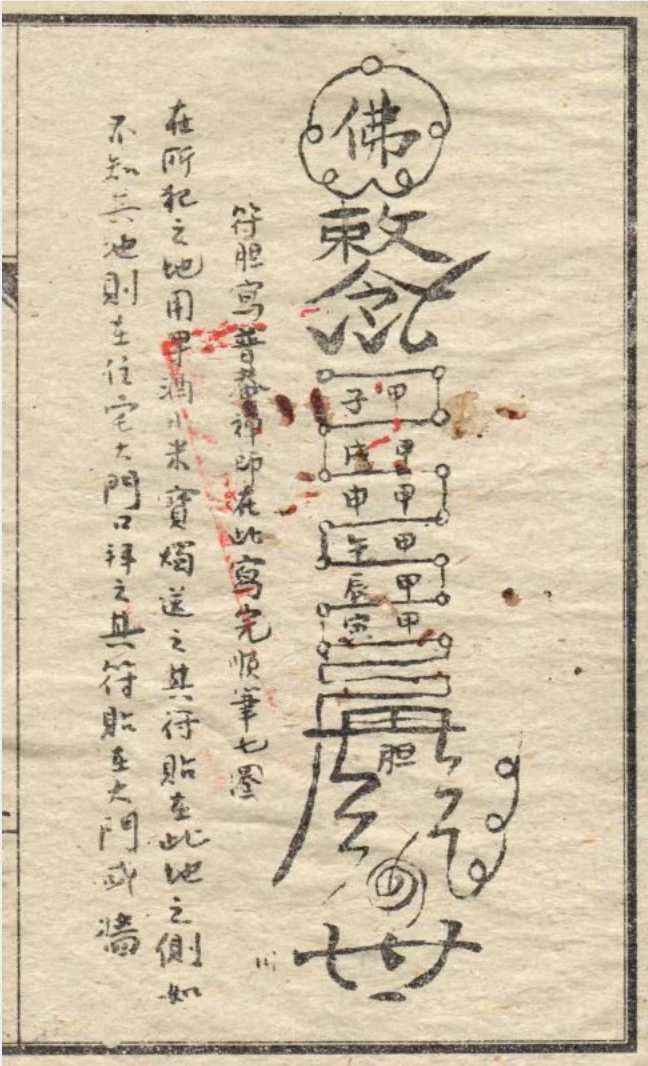 佛
敕
甲子
甲戌
甲申
甲午
甲辰
甲寅
胆
符胆寫普菴禪師在此寫完順筆七圈
在所犯之地用酒小米寶燭送之其符貼在此地之側如
不知其地則在住宅大門口拜之其符貼在大門或牆